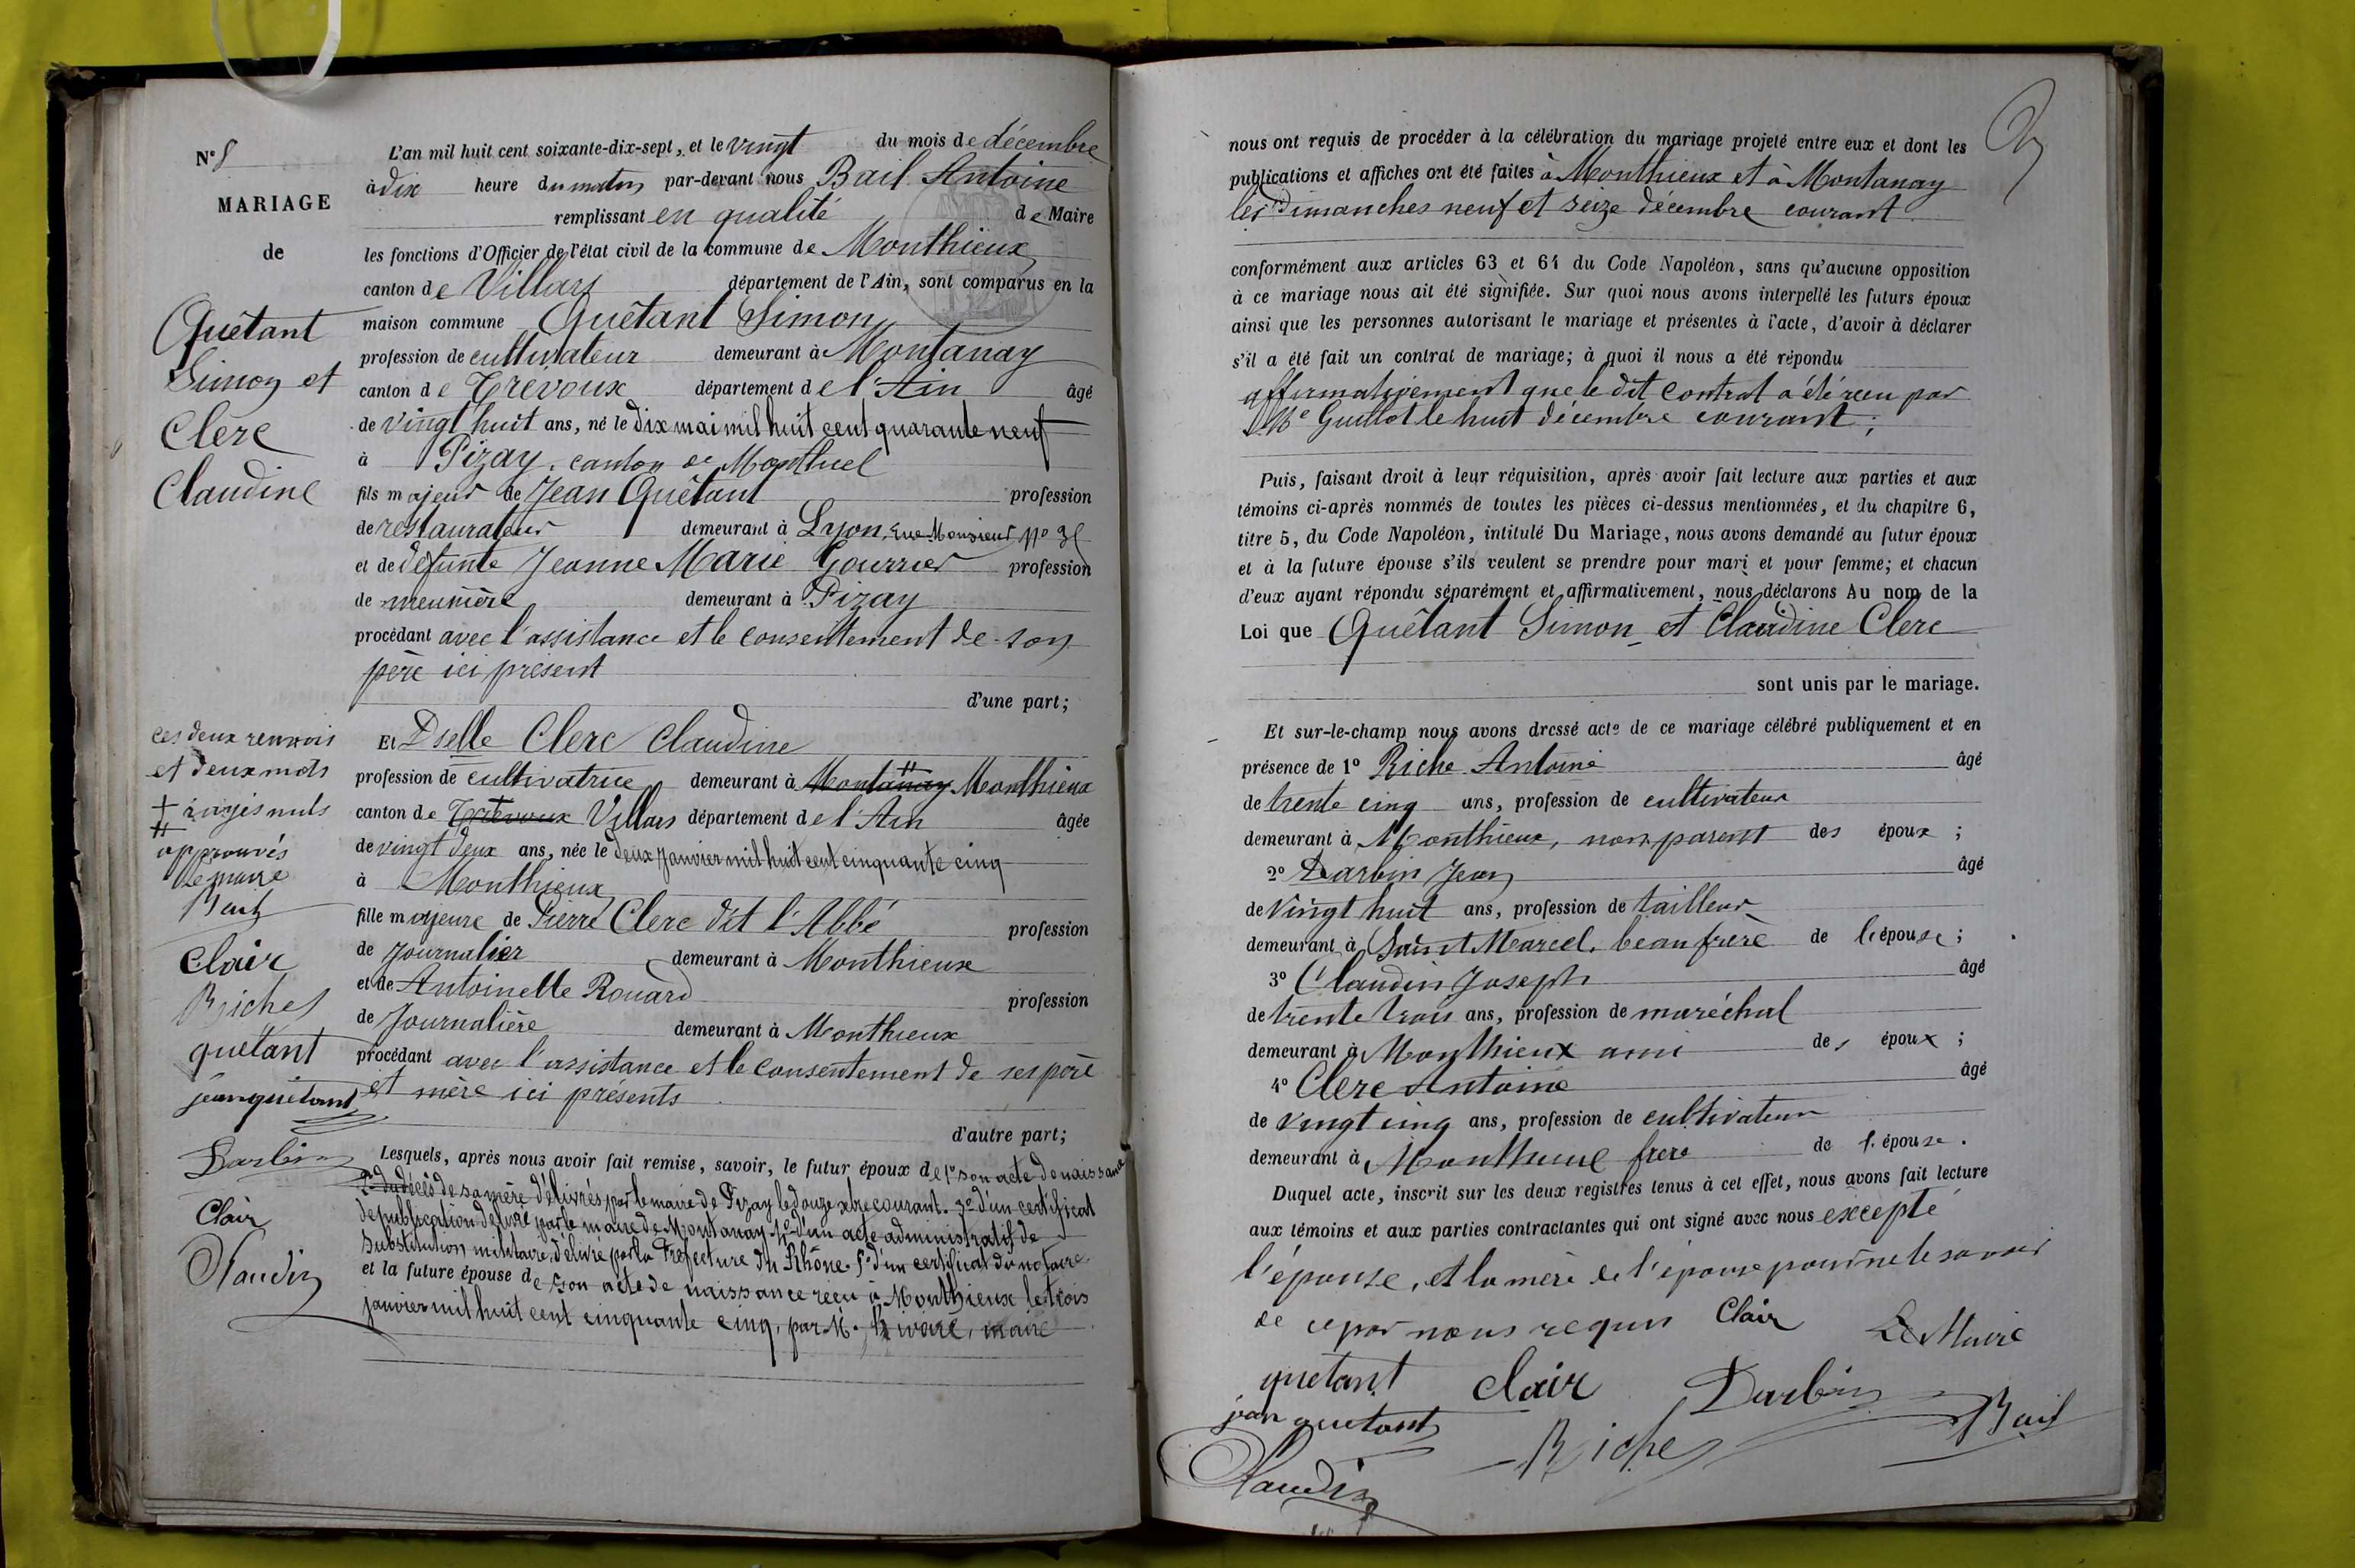 N°
MARIAGE
de
Quêtant
Simon et
Clerc
Claudine
ces deux renvois
et deux mots
rayés nuls
approuvés
Le maire
Bail
Clair
Riche
quêtant
jean quetant
Darbin
Clair
Claudin
L'an mil huit cent soixante-dix-sept, et le vingt du mois de décembre
à dix heure du matin par-devant nous Bail Antoine
remplissant en qualité de Maire
les fonctions d'Officier de l'état civil de la commune de Monthieux
canton de Villars département de l'Ain, sont comparus en la
maison commune Quêtant Simon
profession de cultivateur demeurant à Montanay
canton de Trevoux département de l'Ain âgé
de vingt huit ans, né le dix mai mil huit cent quarante neuf
à Pizay, canton de Montluel
fils majeur de Jean Quêtant profession
de restaurateur demeurant à Lyon, rue Monsieur N°
et de défunte Jeanne Marie Gourrier profession
de meunière demeurant à Pizay
procédant avec l'assistance et le consentement de son
père ici présent
d'une part;
Et Dselle Clerc Claudine
profession de cultivatrice demeurant à Montanay Monthieux
canton de Trevoux Villars département de l'Ain âgée
de vingt deux ans, née le deux janvier mil huit cent cinquante cinq
à Monthieux
fille majeure de Pierre Clerc dit l'Abbé profession
de journalier demeurant à Monthieux
et de Antoinette Rouard profession
de Journalière demeurant à Monthieux
procédant avec l'assistance et le consentement de ses père
et mère ici présents
d'autre part;
Lesquels, après nous avoir fait remise, savoir, le futur époux de 1° son acte de naissance
2° du décès de sa mère délivrés par le maire de Pizay le douze xbre courant. 3° d'un certificat
de publication délivré par le maire de Montanay 4° d'un acte administratif de
substitution militaire, délivré par la Préfecture du Rhône. 5° d'un certificat du notaire
et la future épouse de son acte de naissance reçu à Monthieux le trois
janvier mil huit cent cinquante cinq, par M. maire
nous ont requis de procéder à la célébration du mariage projeté entre eux et dont les
publications et affiches ont été faites à Monthieux et à Montanay
les dimanches neuf et seize décembre courant
conformément aux articles 63 et 64 du Code Napoléon, sans qu'aucune opposition
à ce mariage nous ait été signifiée. Sur quoi nous avons interpellé les futurs époux
ainsi que les personnes autorisant le mariage et présentes à l'acte, d'avoir à déclarer
s'il a été fait un contrat de mariage; à quoi il nous a été répondu
affirmativement que le dit contrat a été reçu par
Me Guillot le huit décembre courant;
Puis, faisant droit à leur réquisition, après avoir fait lecture aux parties et aux
témoins ci-après nommés de toutes les pièces ci-dessus mentionnées, et du chapitre 6,
titre 5, du Code Napoléon, intitulé Du Mariage, nous avons demandé au futur époux
et à la future épouse s'ils veulent se prendre pour mari et pour femme; et chacun
d'eux ayant répondu séparément et affirmativement, nous déclarons Au nom de la
Loi que Quêtant Simon et Claudine Clerc
sont unis par le mariage.
Et sur-le-champ nous avons dressé acte de ce mariage célébré publiquement et en
présence de 1° Riche Antoine âgé
de trente cinq ans, profession de cultivateur
demeurant à Monthieux, non parent des époux ;
2° Darbin Jean âgé
de vingt huit ans, profession de tailleur
demeurant à Saint Marcel, beau frère de l'épouse ;
3° Claudin Joseph âgé
de trente trois ans, profession de maréchal
demeurant à Monthieux ami des époux ;
4° Clerc Antoine âgé
de vingt cinq ans, profession de cultivateur
demeurant à Monthieux frère de l'épouse.
Duquel acte, inscrit sur les deux registres tenus à cet effet, nous avons fait lecture
aux témoins et aux parties contractantes qui ont signé avec nous excepté
l'épouse, et la mère de l'épouse pour ne le savoir
de ce par nous requis Clair Le Maire
quetant Clair Darbin Bail
jean quetant Riche
Claudin